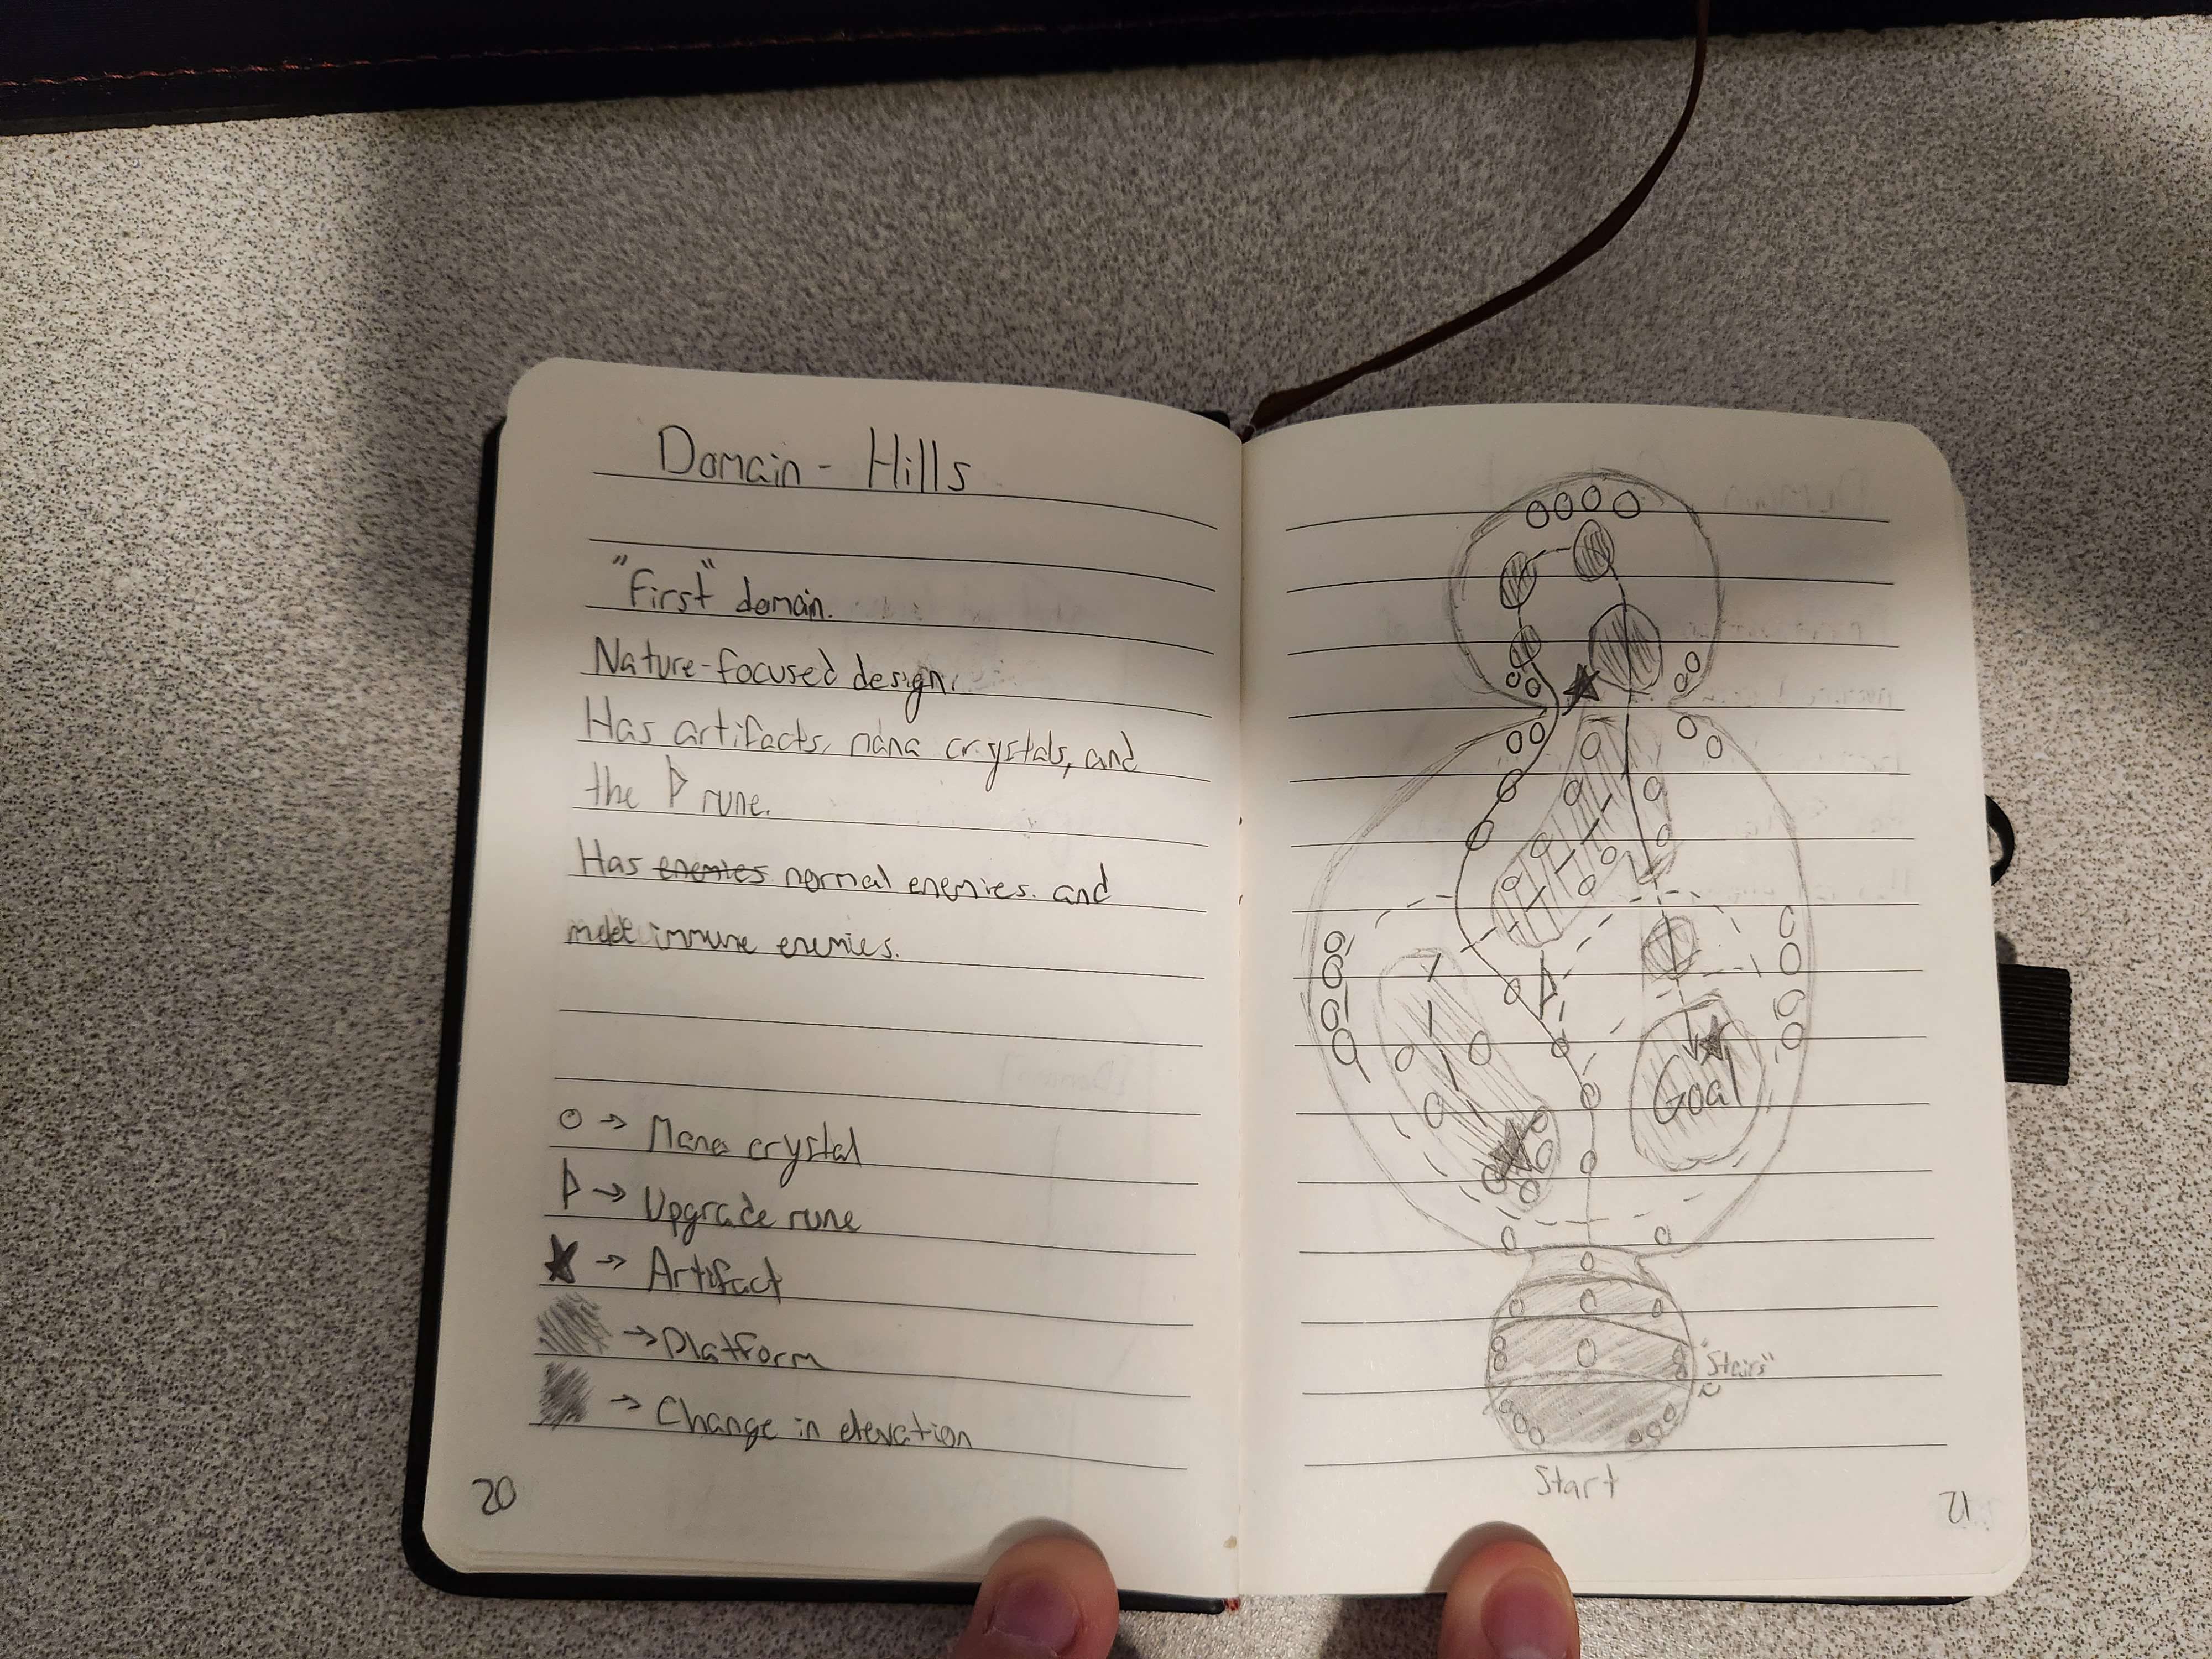 Domain - Hills
"First" domain.
Nature-focused design.
Has artifacts, mana crystals, and
the ᚦ rune.
Has enemies normal enemies. and
melee immune enemies.
○ → Mana crystal
ᚦ → Upgrade rune
★ → Artifact
→ Platform
→ Change in elevation
20
Goal
"Stairs"
Start
21